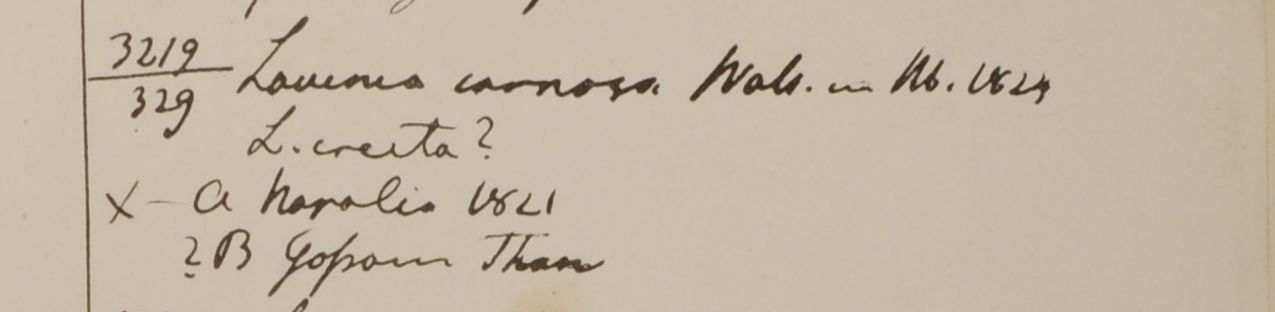 3219 Lavenia carnosa. Wall. in Hb. 1824
329
L. erecta?
X - a Napalia 1821
? B Gossain Than